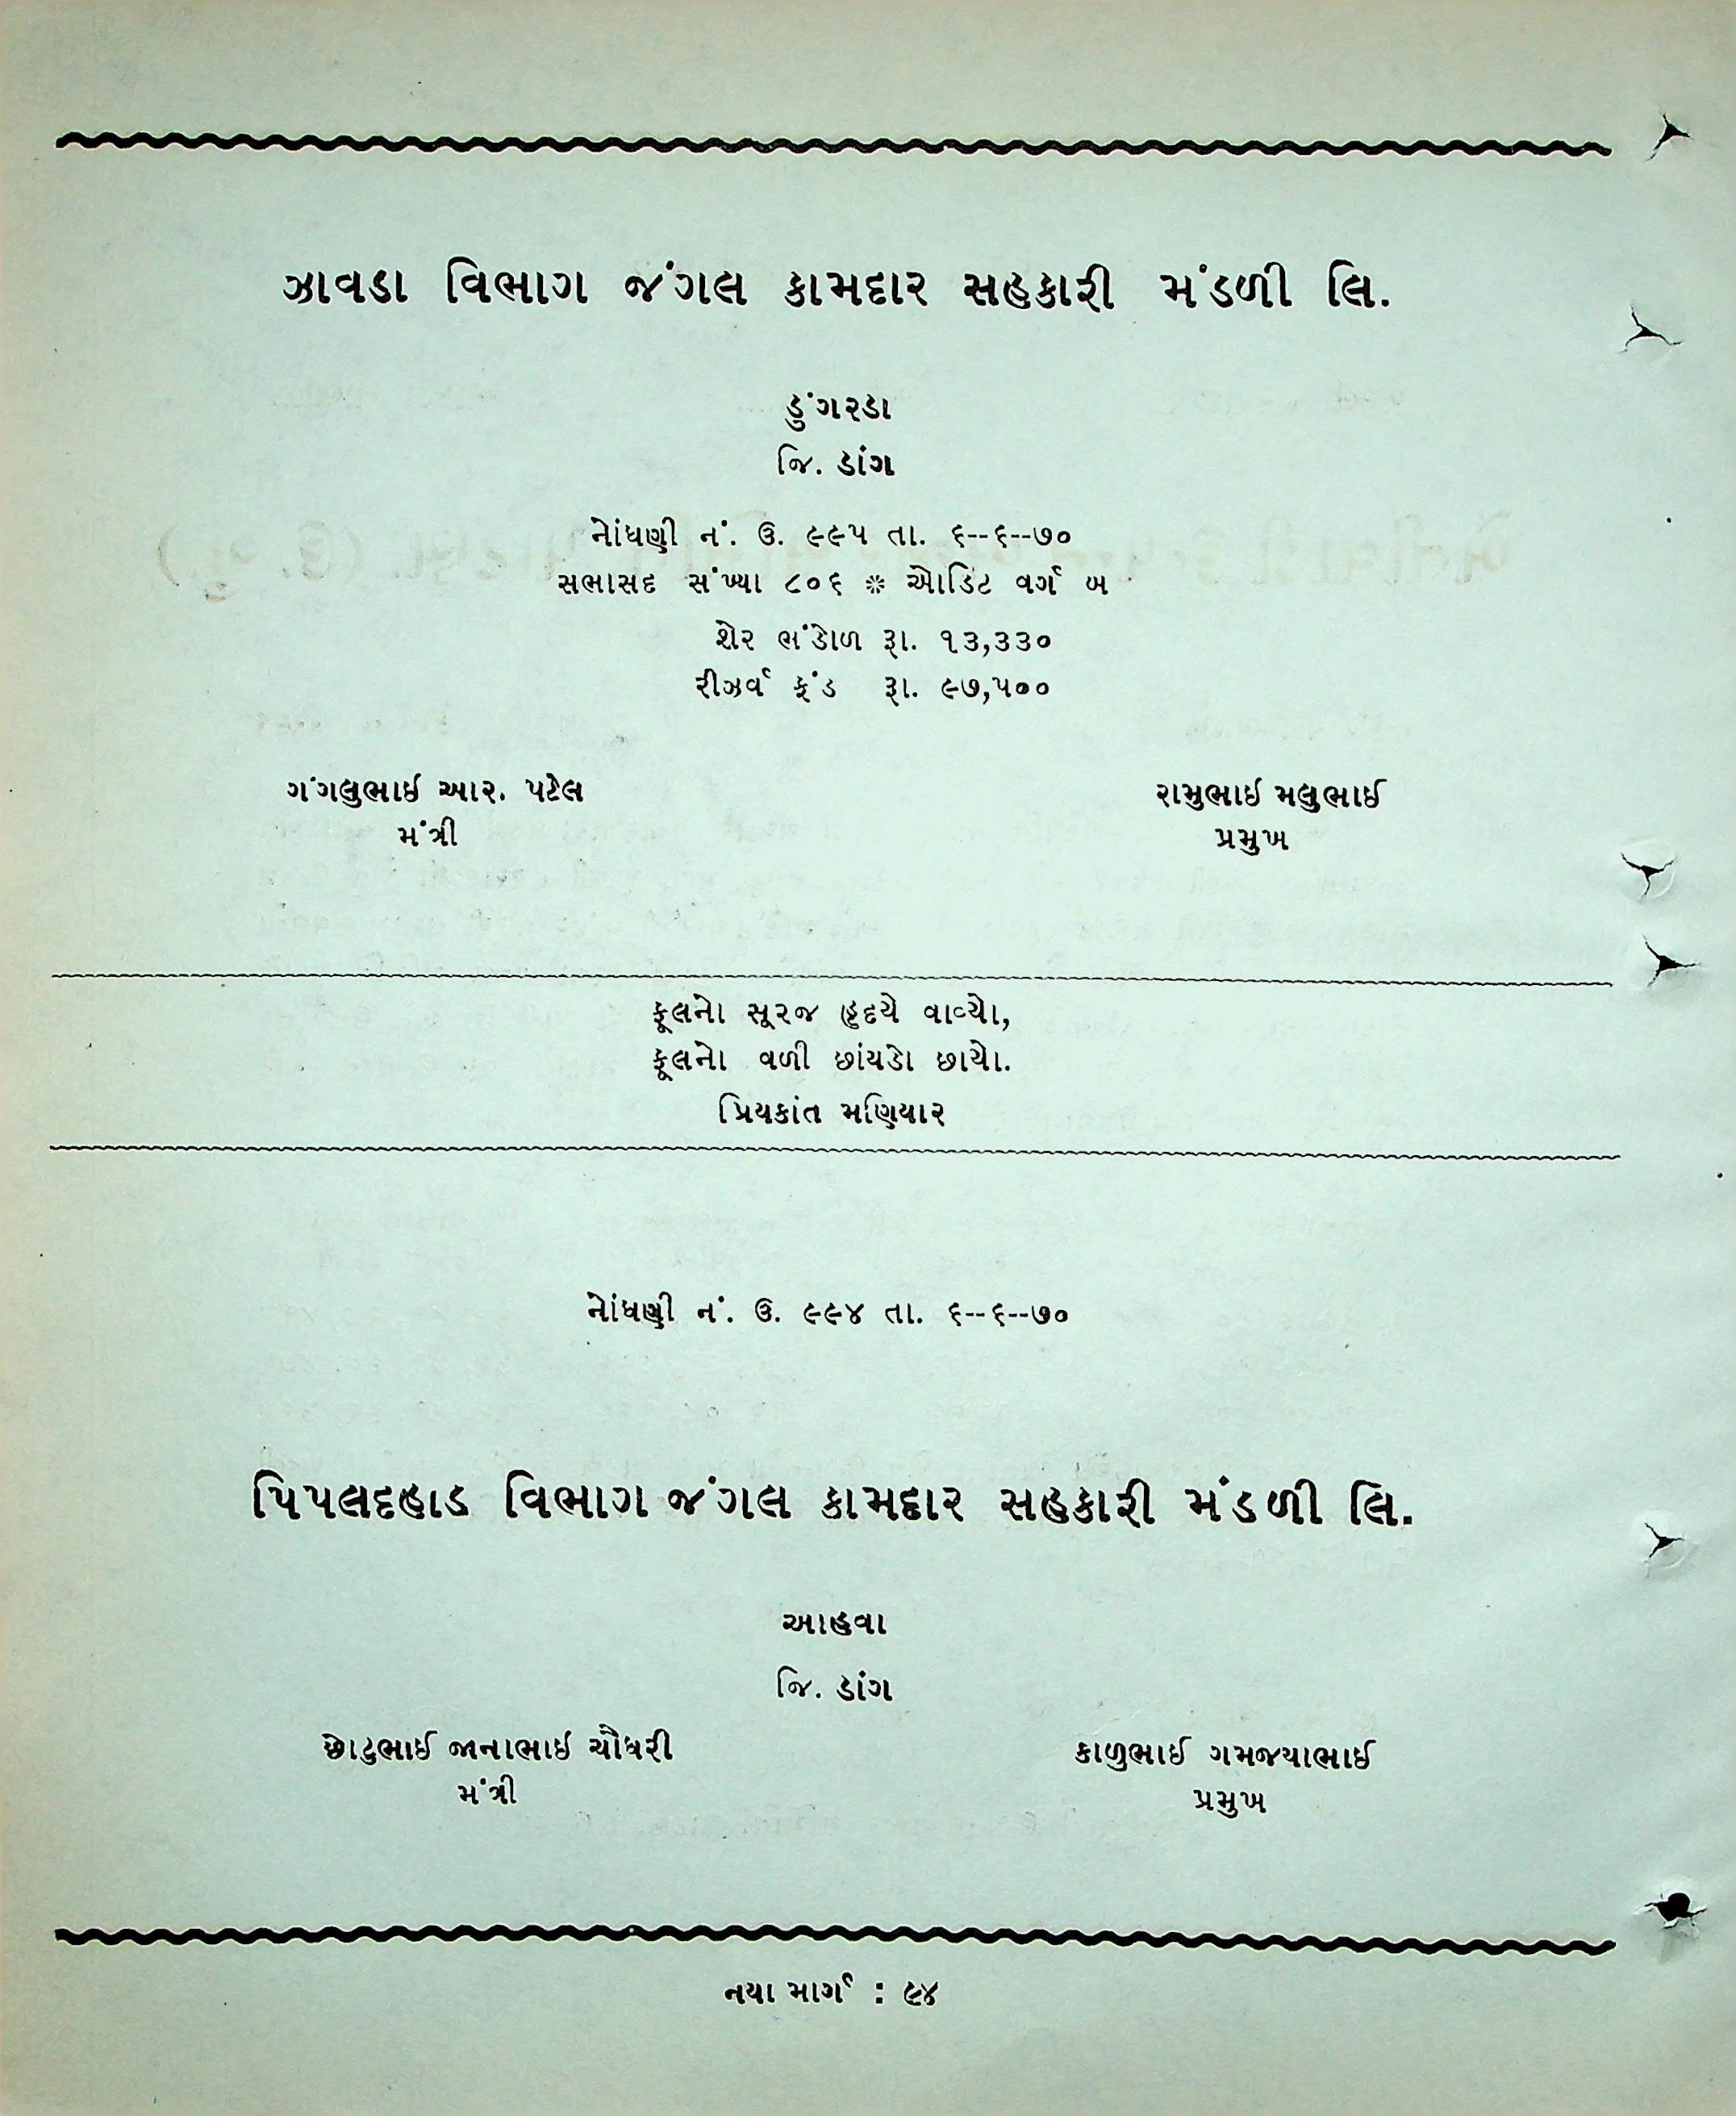 ઝાવડા વિભાગ જંગલ કામદાર સહકારી મંડળી લિ.
ડુંગરડા
જિ. ડાંગ
નોંધણી નં. ઉ. ૯૯૫ તા. ૬--૬--૭૦
સભાસદ સંખ્યા ૮૦૬ * ઓડિટ વર્ગ બ
શેર ભંડોળ રૂા. ૧૩,૩૩૦
રીઝર્વ ફંડ રૂા. ૯૭,૫૦૦
ગંગલુભાઈ આર. પટેલ
મંત્રી
રામુભાઈ મલુભાઈ
પ્રમુખ
ફૂલનો સૂરજ હૃદયે વાવ્યો,
ફૂલનો વળી છાંયડો છાયો.
પ્રિયકાંત મણિયાર
નોંધણી નં. ઉ. ૯૯૪ તા. ૬--૬--૭૦
પિપલદહાડ વિભાગ જંગલ કામદાર સહકારી મંડળી લિ.
આહવા
જિ. ડાંગ
છોટુભાઈ જાનાભાઈ ચૌધરી
મંત્રી
કાળુભાઈ ગમજયાભાઈ
પ્રમુખ
નયા માર્ગ : ૯૪